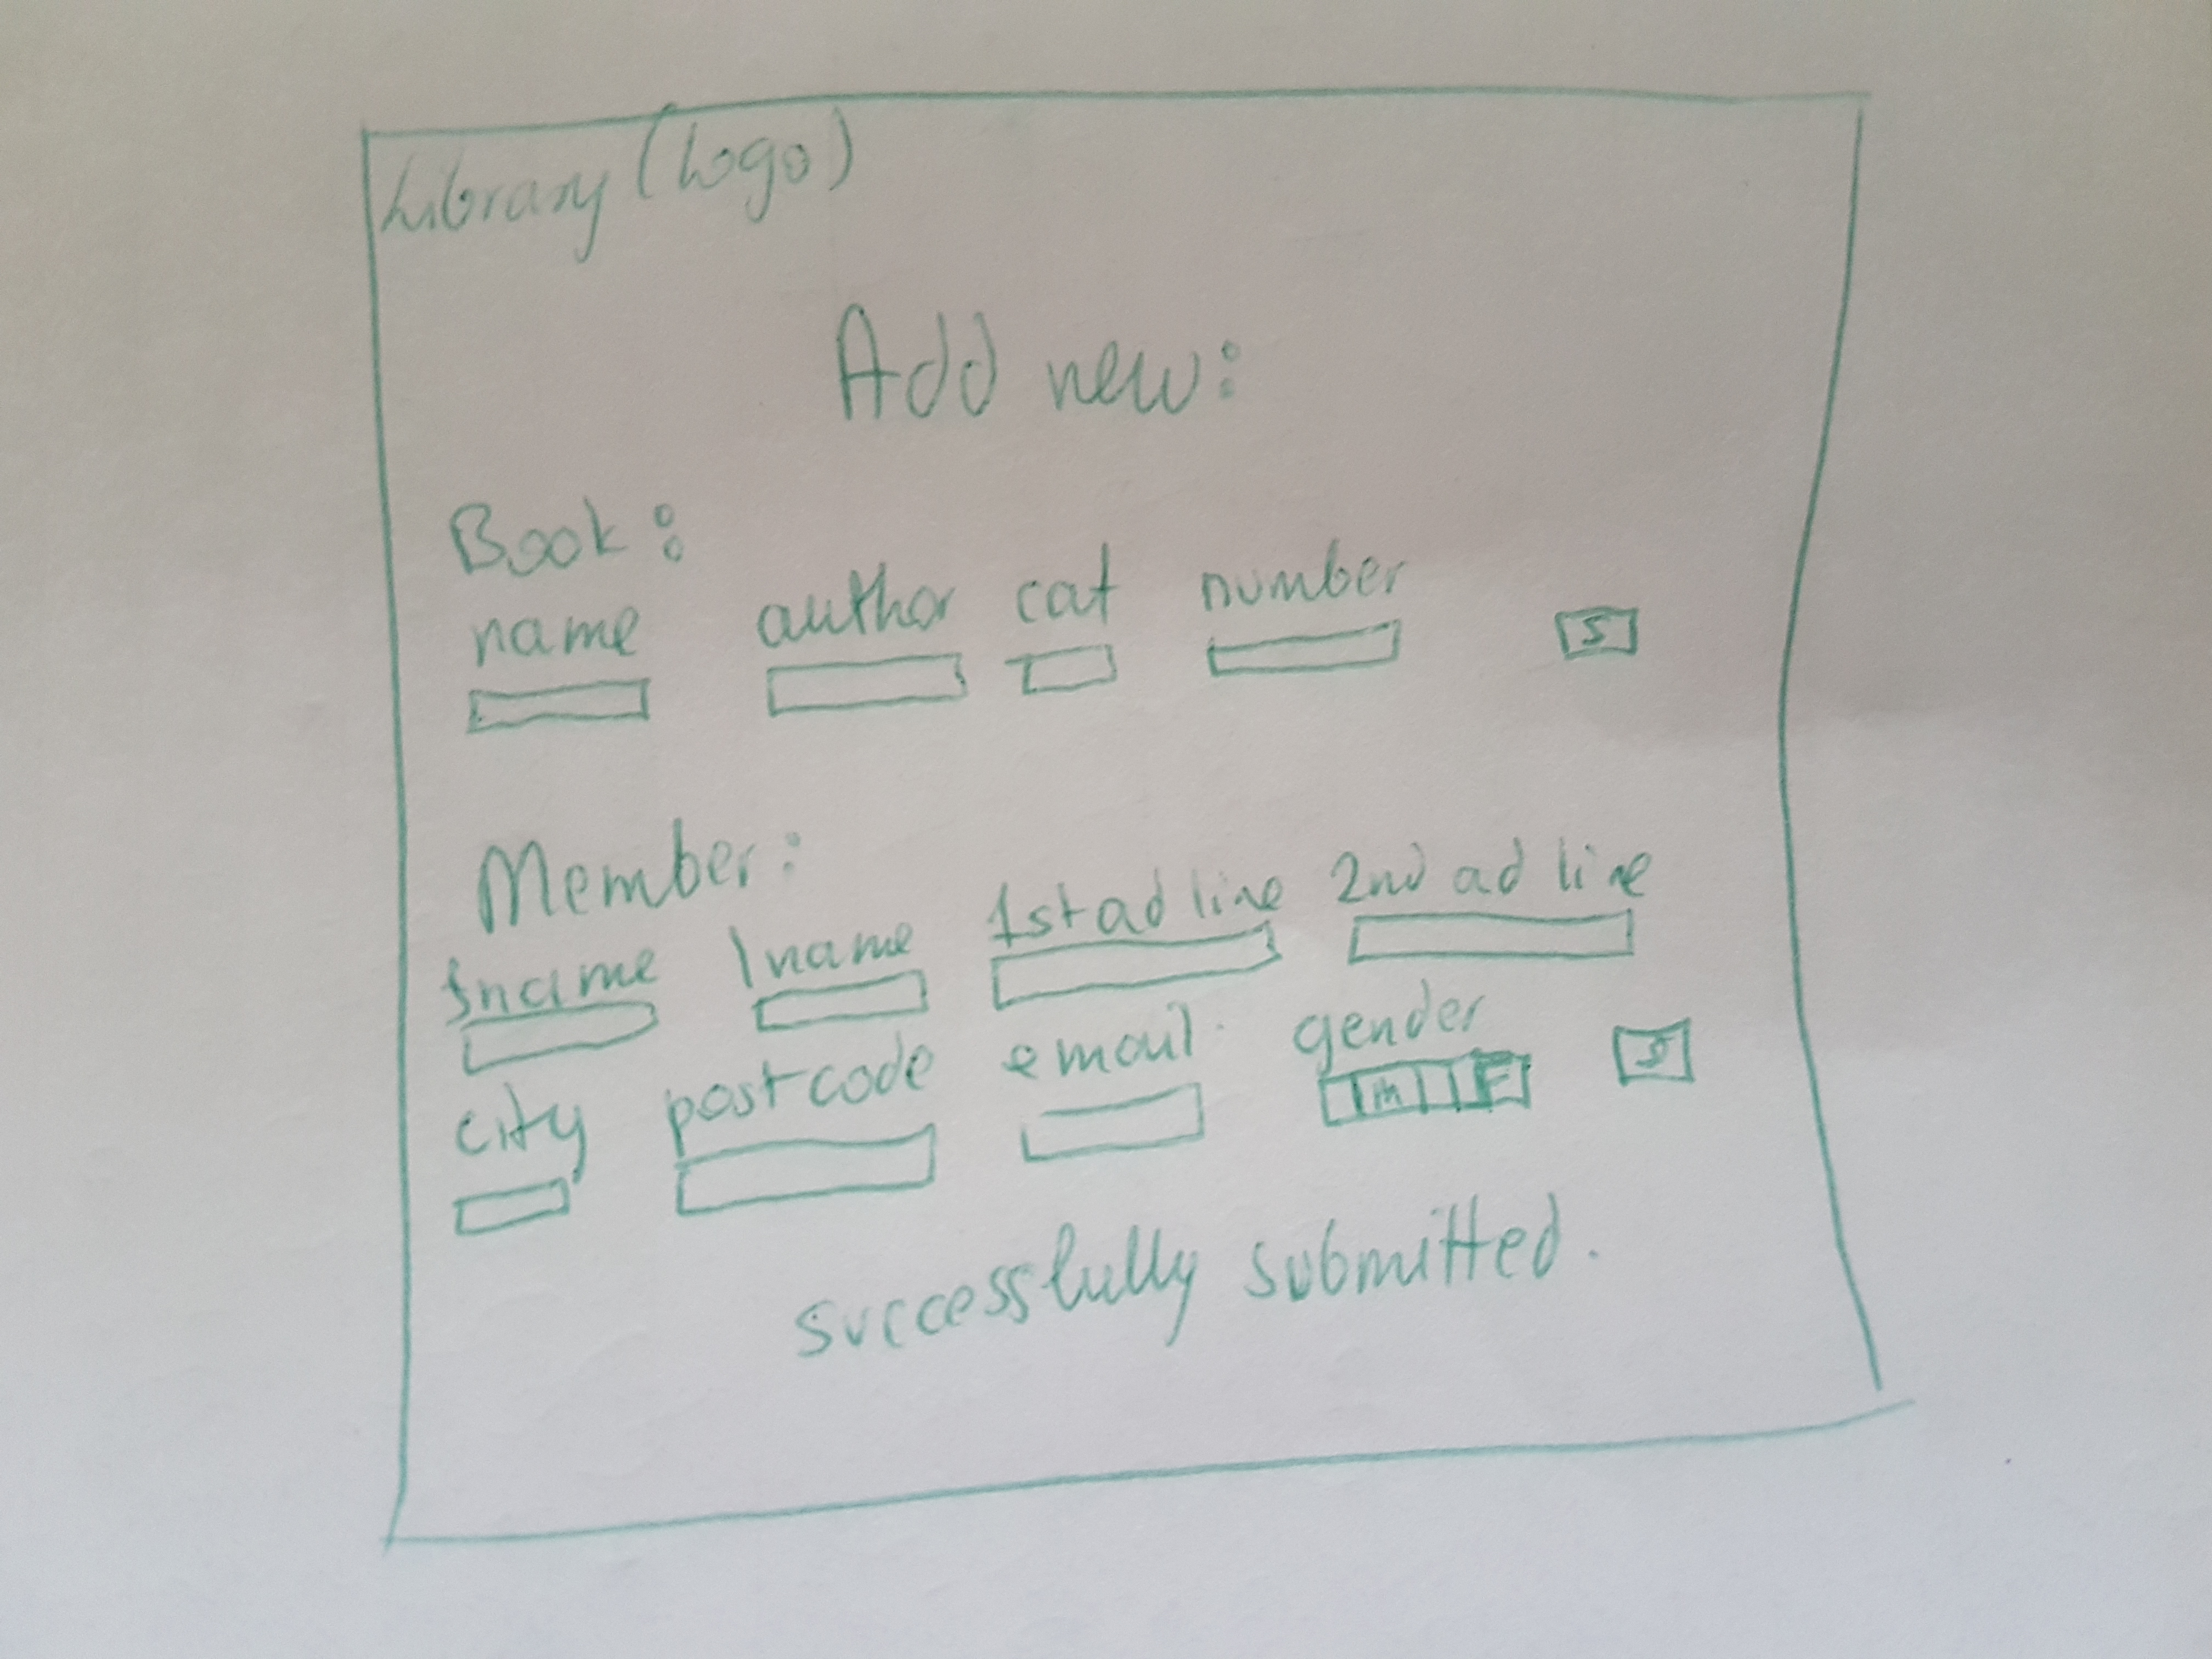 Library (Logo)
Add new:
Book:
name author cat number
S
Member:
fname lname 1st ad line 2nd ad line
city postcode email gender
M F S
successfully submitted.